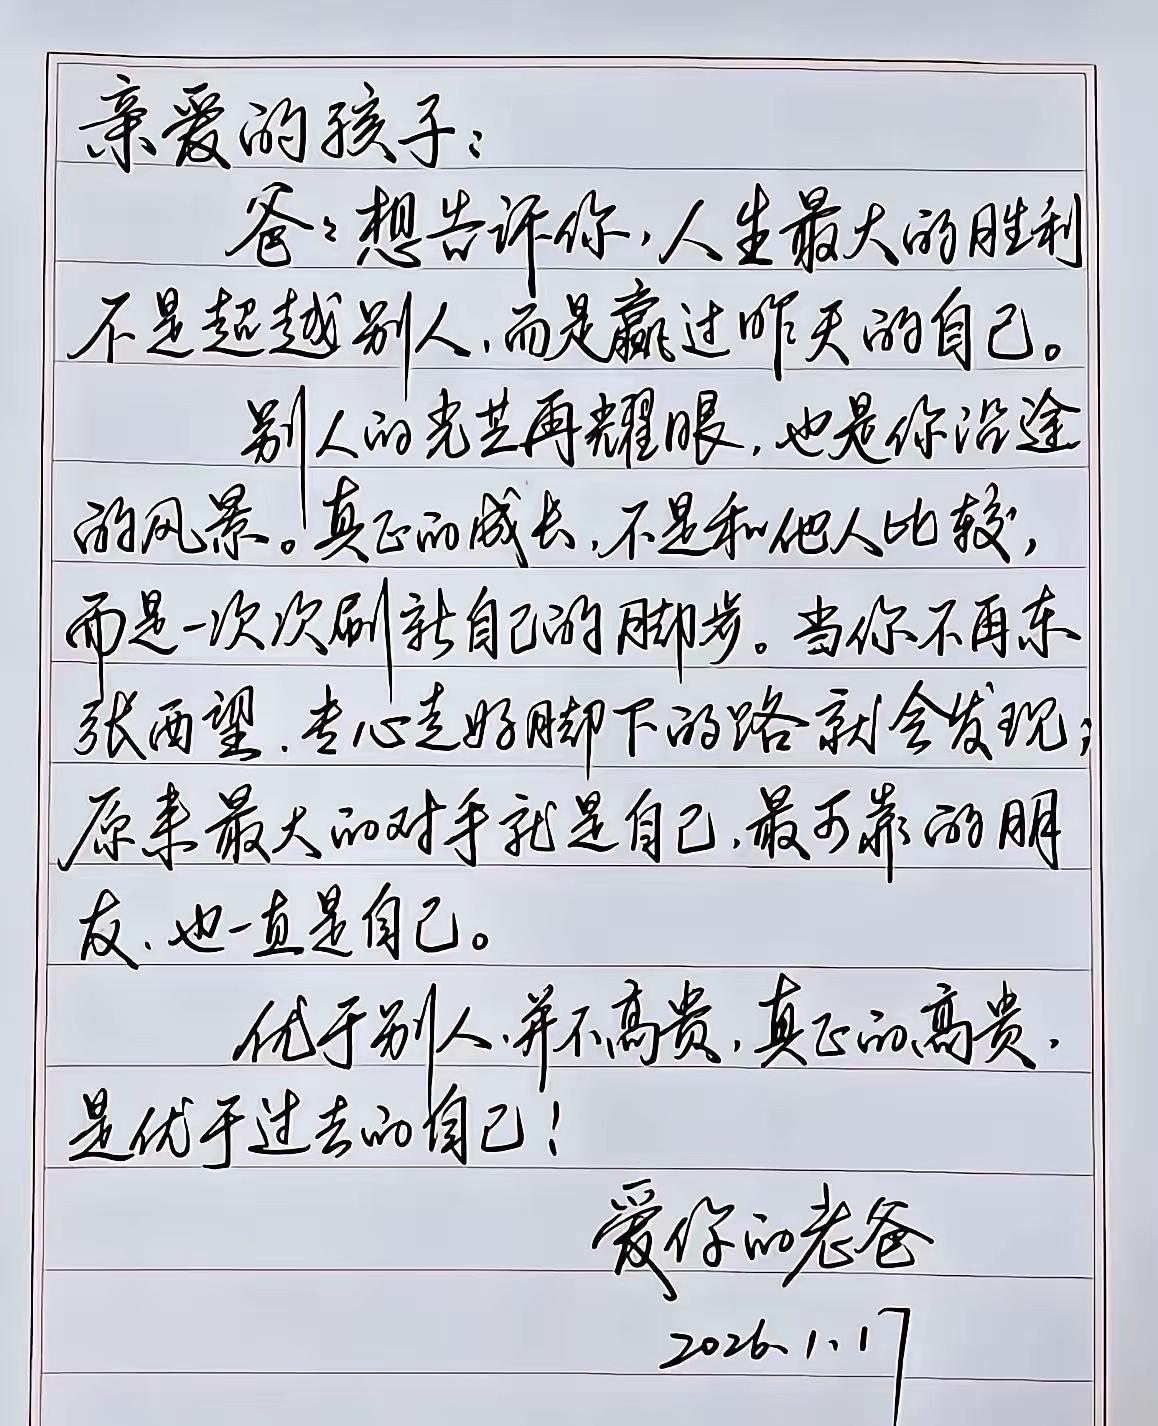 亲爱的孩子：
爸爸想告诉你，人生最大的胜利
不是超越别人，而是赢过昨天的自己。
别人的光芒再耀眼，也是你沿途
的风景。真正的成长，不是和他人比较，
而是一次次刷新自己的脚步。当你不再东
张西望，专心走好脚下的路就会发现；
原来最大的对手就是自己，最可靠的朋
友、也一直是自己。
优于别人，并不高贵，真正的高贵，
是优于过去的自己！
爱你的老爸
2026.1.17